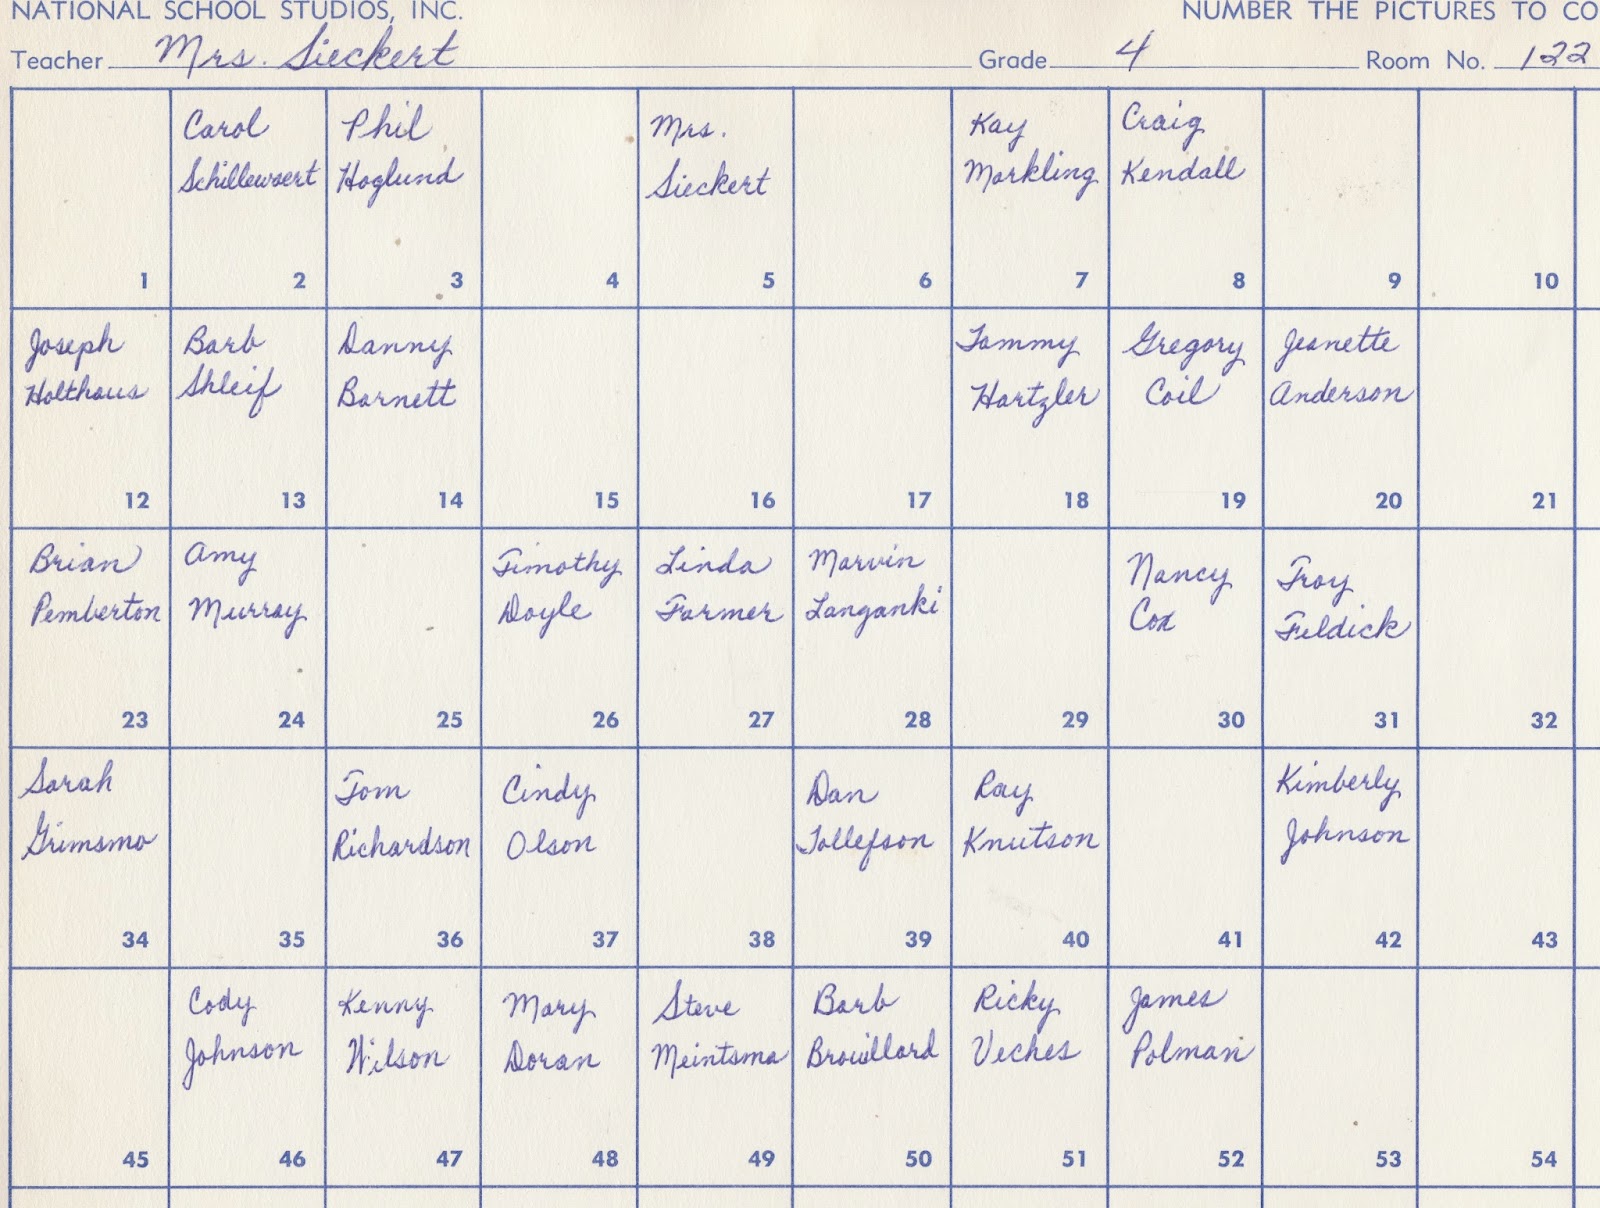 NATIONAL SCHOOL STUDIOS, INC. NUMBER THE PICTURES TO CO
Teacher Mrs. Sieckert Grade 4 Room No. 122
Carol Phil Mrs. Kay Craig
Schillewaert Hoglund Sieckert Markling Kendall
1 2 3 4 5 6 7 8 9 10
Joseph Barb Danny Tammy Gregory Jeanette
Holthaus Shleif Barnett Hartzler Coil Anderson
12 13 14 15 16 17 18 19 20 21
Brian Amy Timothy Linda Marvin Nancy Troy
Pemberton Murray Doyle Farmer Langanki Cox Feldick
23 24 25 26 27 28 29 30 31 32
Sarah Tom Cindy Dan Ray Kimberly
Grimsmo Richardson Olson Tollefson Knutson Johnson
34 35 36 37 38 39 40 41 42 43
Cody Kenny Mary Steve Barb Ricky James
Johnson Wilson Doran Meintsma Brouillard Veches Polman
45 46 47 48 49 50 51 52 53 54